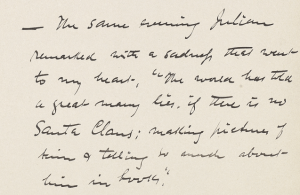 — The same evening Julian
remarked with a sadness that went
to my heart, "The world has told
a great many lies, if there is no
Santa Claus; making pictures of
him & telling so much about
him in books".